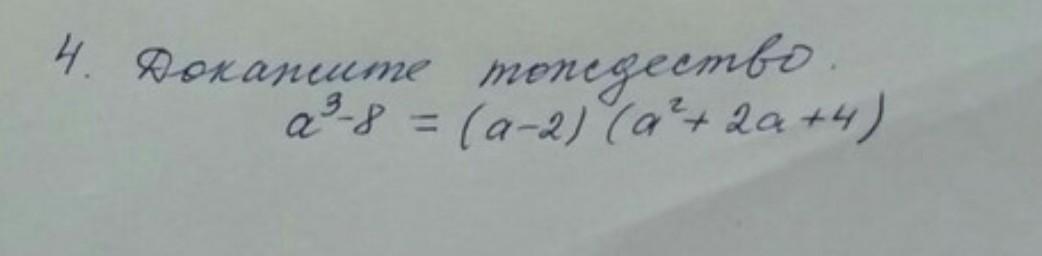 4. Докажите тождество.
a³-8 = (a-2) (a²+ 2a +4)